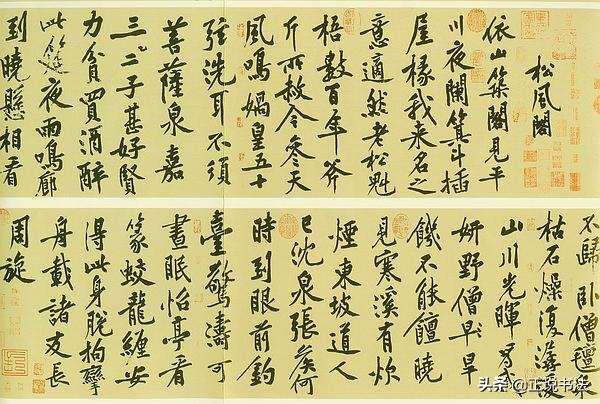 松風閣
依山築閣見平
川夜闌箕斗插
屋椽我来名之
意適然老松魁
梧數百年斧
斤所赦今參天
風鳴媧皇五十
弦洗耳不須
菩薩泉嘉
三二子甚好賢
力貧買酒醉
此筵夜雨鳴廊
到曉懸相看
不歸卧僧氈泉
枯石燥復潺湲
山川光暉為我
妍野僧早旱
饑不能饘曉
見寒溪有炊
煙東坡道人
已沈泉張侯何
時到眼前釣
臺驚濤可
晝眠怡亭看
篆蛟龍纏安
得此身脫拘攣
舟載諸友長
周旋
头条